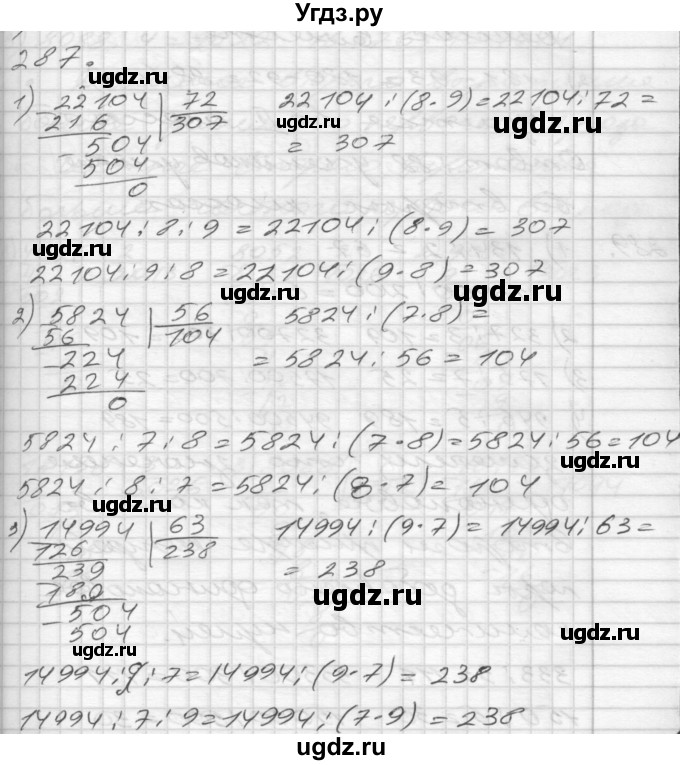 Угдз.ру
287.
1) 22104 | 72      22104 : (8·9) = 22104 : 72 =
216 | 307      = 307
504
504
0
22104 : 8 : 9 = 22104 : (8·9) = 307
22104 : 9 : 8 = 22104 : (9·8) = 307
2) 5824 | 56      5824 : (7·8) =
56 | 104      = 5824 : 56 = 104
224
224
0
5824 : 7 : 8 = 5824 : (7·8) = 5824 : 56 = 104
5824 : 8 : 7 = 5824 : (8·7) = 104
3) 14994 | 63      14994 : (9·7) = 14994 : 63 =
126 | 238      = 238
239
189
504
504
14994 : 9 : 7 = 14994 : (9·7) = 238
14994 : 7 : 9 = 14994 : (7·9) = 238
ugdz.ru